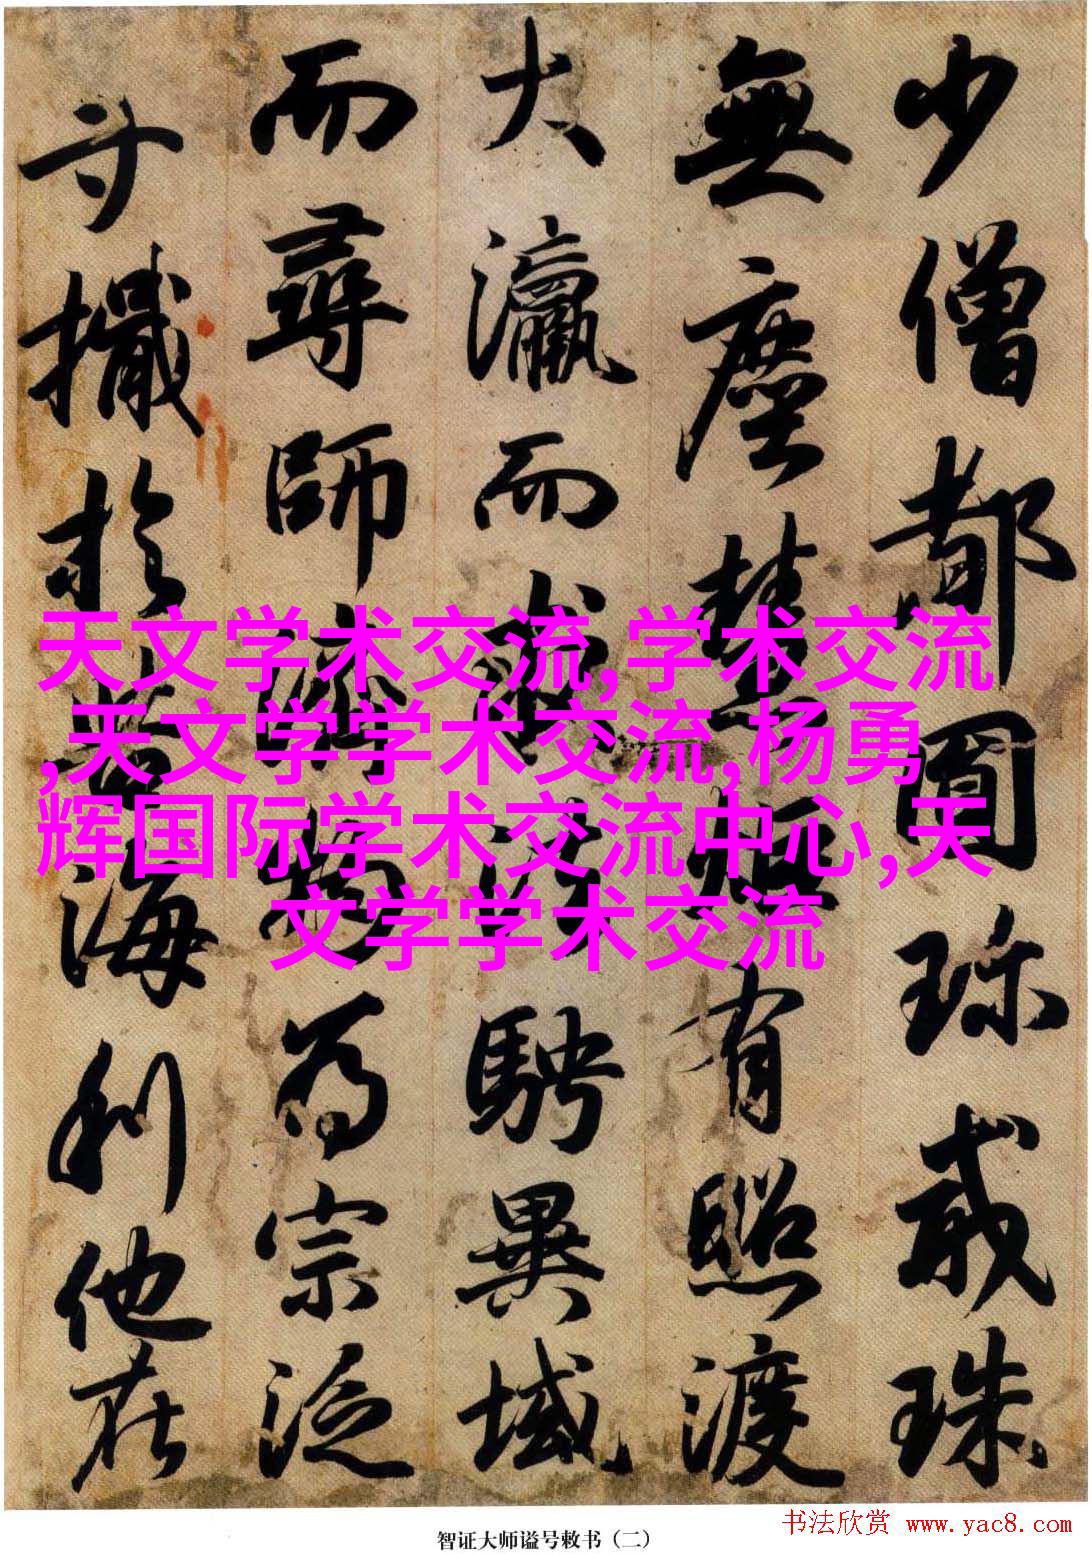 少僧都圓珎戒珠
無塵慧炬有照渡
大瀛而騁異域
而尋師濟物為宗泛
寸檝於苦海利他在
天文学术交流,学术交流
,天文学学术交流,杨勇
辉国际学术交流中心,天
文学学术交流
书法欣赏 www.yac8.com
智证大师谥号敕书（二）